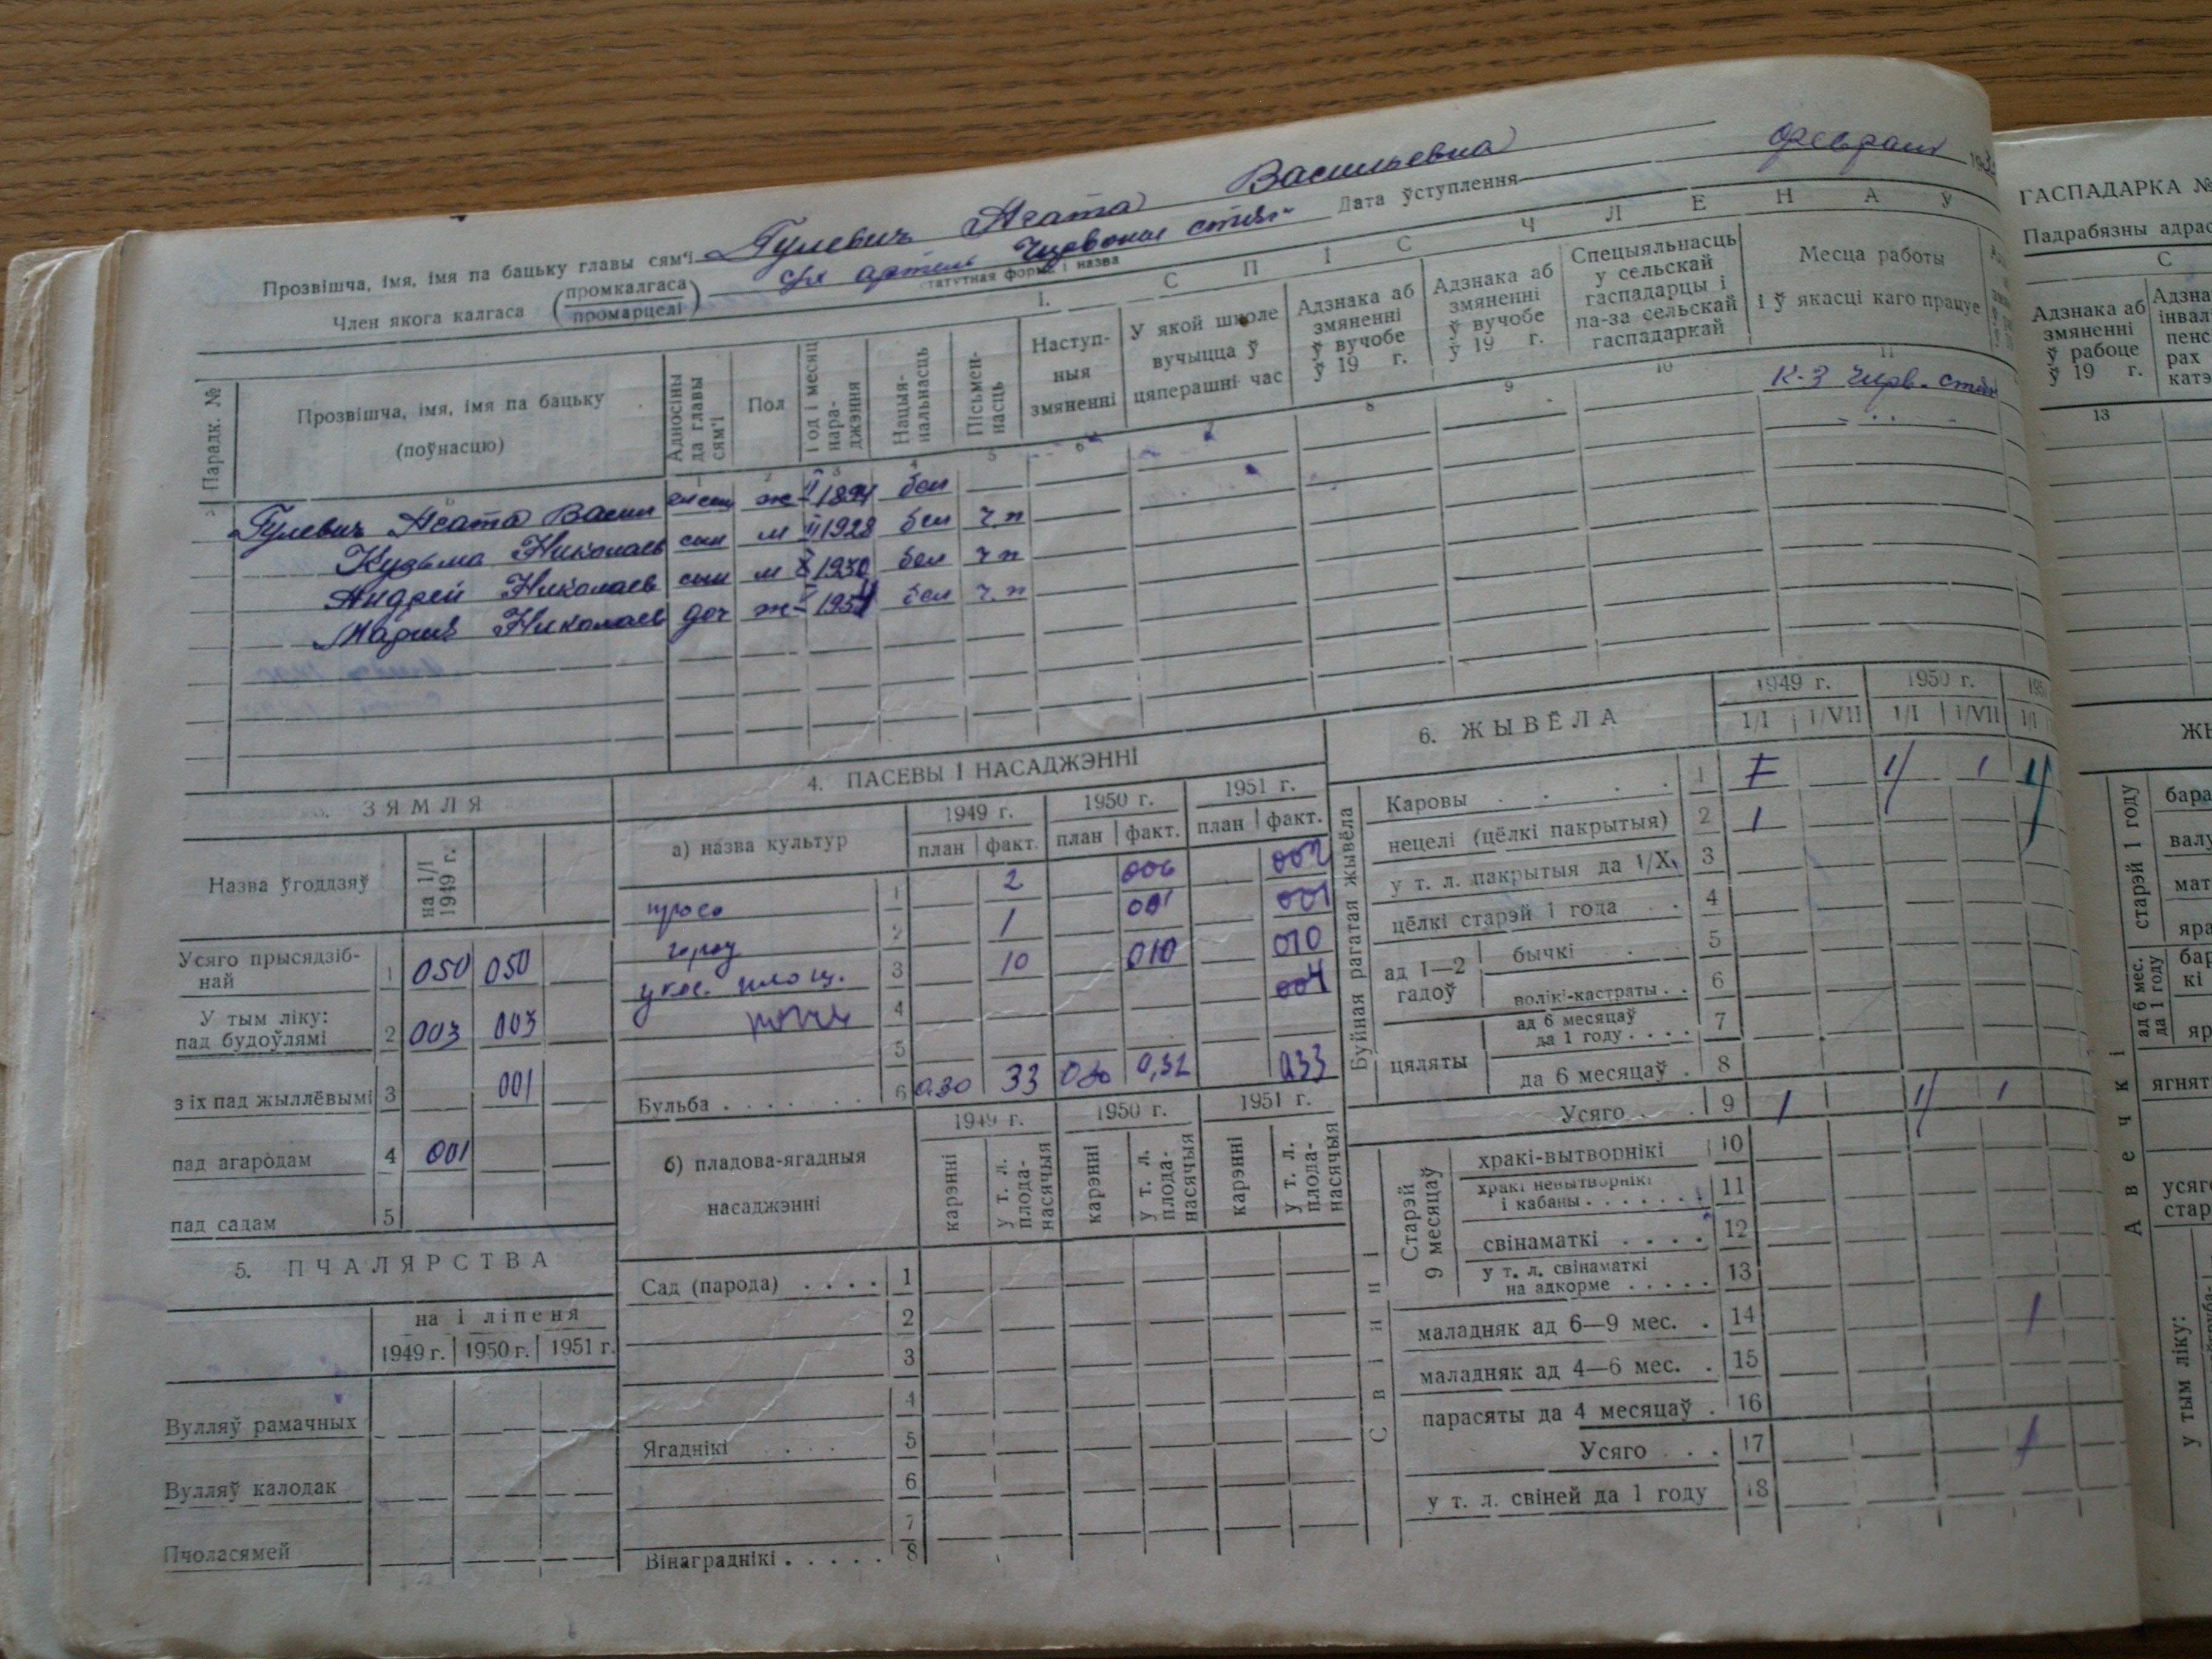 Прозвішча, імя, імя па бацьку главы сям'і Гулевич Агата Васильевна
Член якога калгаса (промкалгаса промарцелі) с/х артель Дата ўступлення
статутная форма і назва
1. С П І С Ч Л Е Н А Ў
Парадк. №
Прозвішча, імя, імя па бацьку (поўнасцю)
Адносіны да главы сям'і
Пол
Год і месяц нараджэння
Нацыянальнасць
Пісьменнасць
Наступныя змяненні
У якой школе вучыцца ў цяперашні час
Адзнака аб змяненні ў вучобе ў 19 г.
Адзнака аб змяненні ў вучобе ў 19 г.
Спецыяльнасць у сельскай гаспадарцы і па-за сельскай гаспадаркай
Месца работы і ў якасці каго працуе
2 3 4 5 6 7 8 9 10 11
Гулевич Агата Васил ж 1894 бел
Кузьма Николаев сын м 1928 бел ч.п
Андрей Николаев сын м 1930 бел ч п
Мария Николаев доч ж бел ч.п
ЗЯМЛЯ
Назва ўгоддзяў на 1/I 1949 г.
Усяго прысядзібнай 1 050 050
У тым ліку: пад будоўлямі 2 003 003
з іх пад жыллёвымі 3 001
пад агародам 4 001
пад садам 5
5. ПЧАЛЯРСТВА
на 1 ліпеня
1949 г. 1950 г. 1951 г.
Вулляў рамачных
Вулляў калодак
Пчоласямей
4. ПАСЕВЫ І НАСАДЖЭННІ
а) назва культур
1949 г. 1950 г. 1951 г.
план факт. план факт. план факт.
просо 1 2 006
2 1 001 001
3 10 010 010
4 004
5
Бульба 6 0,30 33 0,30 0,32 0,33
б) пладова-ягадныя насаджэнні
1949 г. 1950 г. 1951 г.
карэнні у т. л. плоданасячыя карэнні у т. л. плоданасячыя карэнні у т. л. плоданасячыя
Сад (парода) . . . . 1
2
3
4
Ягаднікі . . . . 5
6
7
Вінаграднікі . . . . . 8
6. ЖЫВЁЛА
1949 г. 1950 г.
1/I 1/VII 1/I 1/VII 1/I
Буйная рагатая жывёла
Каровы . . . . 1
нецелі (цёлкі пакрытыя) 2 1
у т. л. пакрытыя да 1/X 3
цёлкі старэй 1 года . . 4
ад 1—2 гадоў
бычкі . 5
волікі-кастраты . . 6
цяляты
ад 6 месяцаў да 1 году . . . . 7
да 6 месяцаў . 8
Усяго . . . 9 1
Свінні
Старэй 9 месяцаў
хракі-вытворнікі 10
хракі невытворнікі і кабаны . . . . . . . 11
свінаматкі . . . . 12
у т. л. свінаматкі на адкорме . . . . . 13
маладняк ад 6—9 мес. . 14 1
маладняк ад 4—6 мес. . 15
парасяты да 4 месяцаў . 16
Усяго . . . 17 1
у т. л. свіней да 1 году 18
ГАСПАДАРКА №
Адзнака аб змяненні ў рабоце ў 19 г.
13
Авечкі
старэй 1 году
ад 6 мес. да 1 году
у тым ліку: